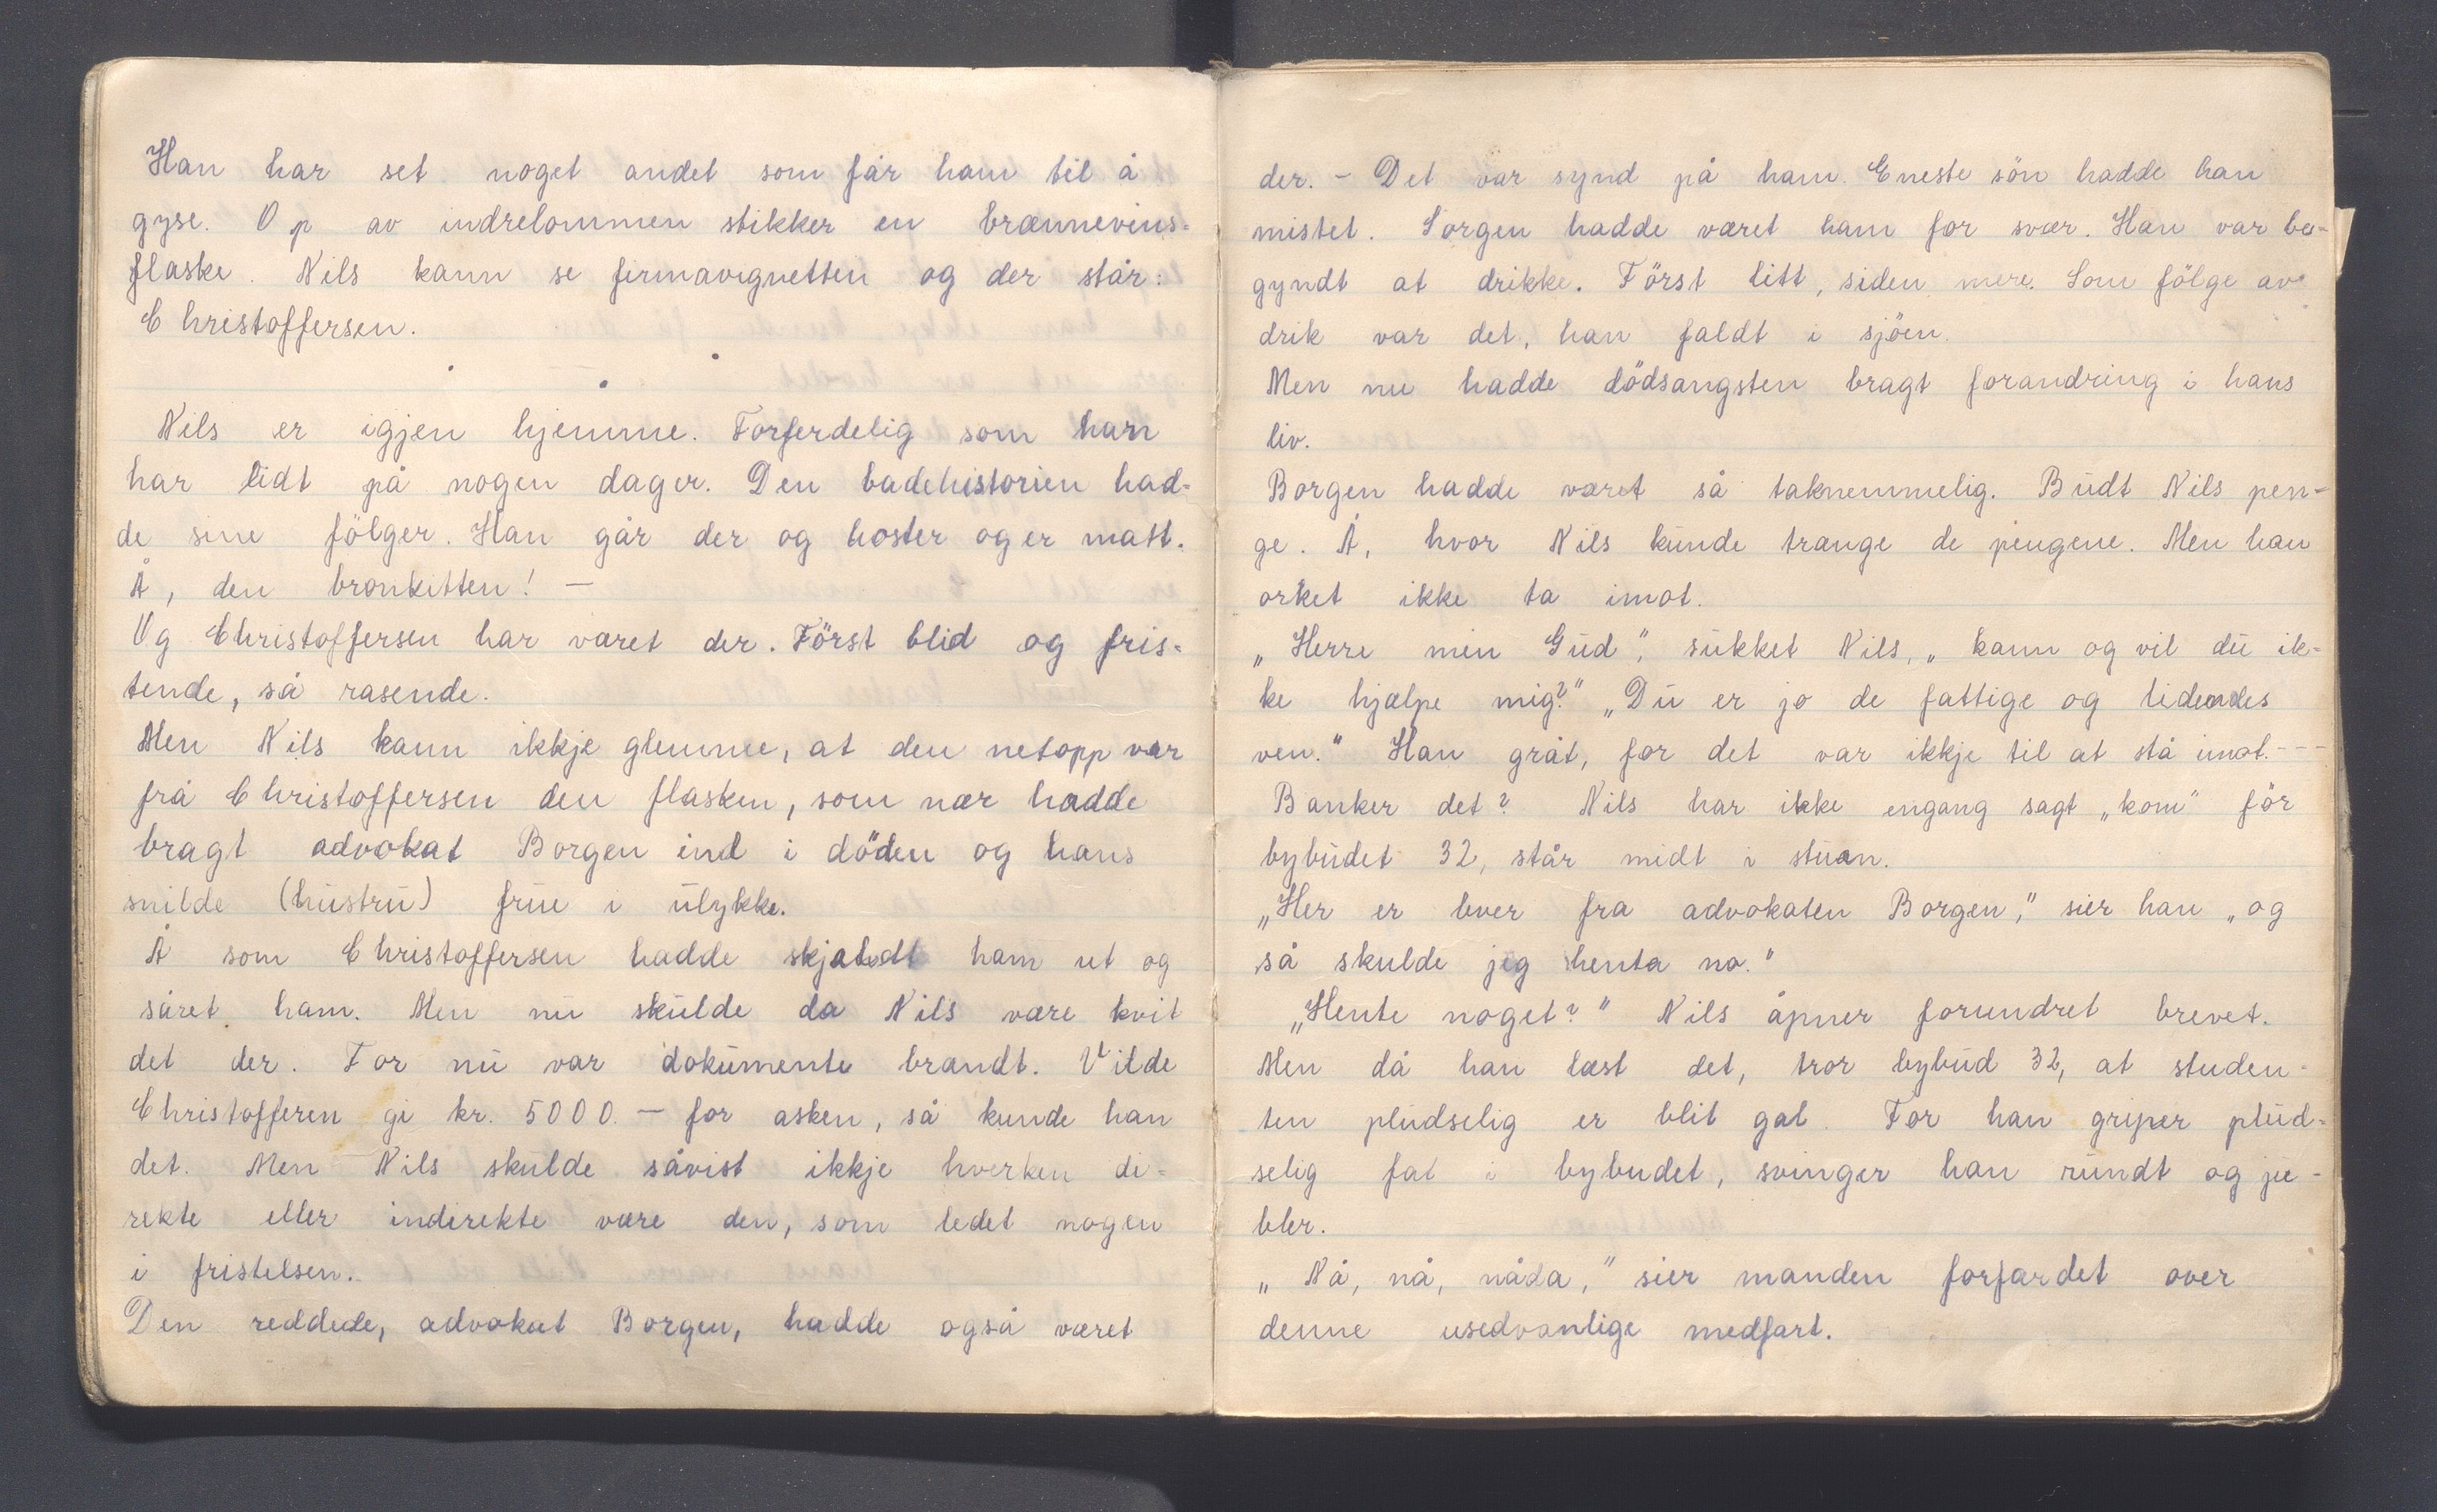 Han har set noget andet som får ham til å
gyse. Op av indrelommen stikker en brænnevins-
flaske. Nils kann se firmavignetten og der står:
Christoffersen.
Nils er igjen hjemme. Forferdelig som han
har lidt på nogen dager. Den badehistorien had-
de sine fölger. Han går der og hoster og er matt.
Å, den bronkitten! —
Og Christoffersen har været der. Först blid og fris-
tende, så rasende.
Men Nils kann ikkje glemme, at den netopp var
frå Christoffersen den flasken, som nær hadde
bragt advokat Borgen ind i döden og hans
snilde (hustru) frue i ulykke.
Å som Christoffersen hadde skjældt ham ut og
såret ham. Men nu skulde da Nils være kvit
det der. For nu var dokumente brændt. Vilde
Christofferen gi kr. 5000.— for asken, så kunde han
det. Men Nils skulde såvist ikkje hverken di-
rekte eller indirekte være den, som ledet nogen
i fristelsen.
Den reddede, advokat Borgen, hadde også været
der. - Det var synd på ham. Eneste sön hadde han
mistet. Sorgen hadde været ham for svær. Han var be-
gyndt at drikke. Först litt, siden mere. Som fölge av
drik var det, han faldt i sjöen.
Men nu hadde dödsangsten bragt forandring i hans
liv.
Borgen hadde været så taknemmelig. Budt Nils pen-
ge. Å, hvor Nils kunde trænge de pengene. Men han
orket ikke ta imot.
„Herre min Gud", sukket Nils, „kann og vil du ik-
ke hjælpe mig?" „Du er jo de fattige og lidendes
ven." Han gråt, for det var ikkje til at stå imot.---
Banker det? Nils har ikke engang sagt „kom" för
bybudet 32, står midt i stuen.
„Her er bver fra advokaten Borgen," sier han „og
så skulde jeg henta no."
„Hente noget?" Nils åpner forundret brevet.
Men då han læst det, tror bybud 32, at studen-
ten pludselig er blit gal. For han griper plud-
selig fat i bybudet, svinger han rundt og ju-
bler.
„Nå, nå, nåda," sier manden forfærdet over
denne usedvanlige medfart.